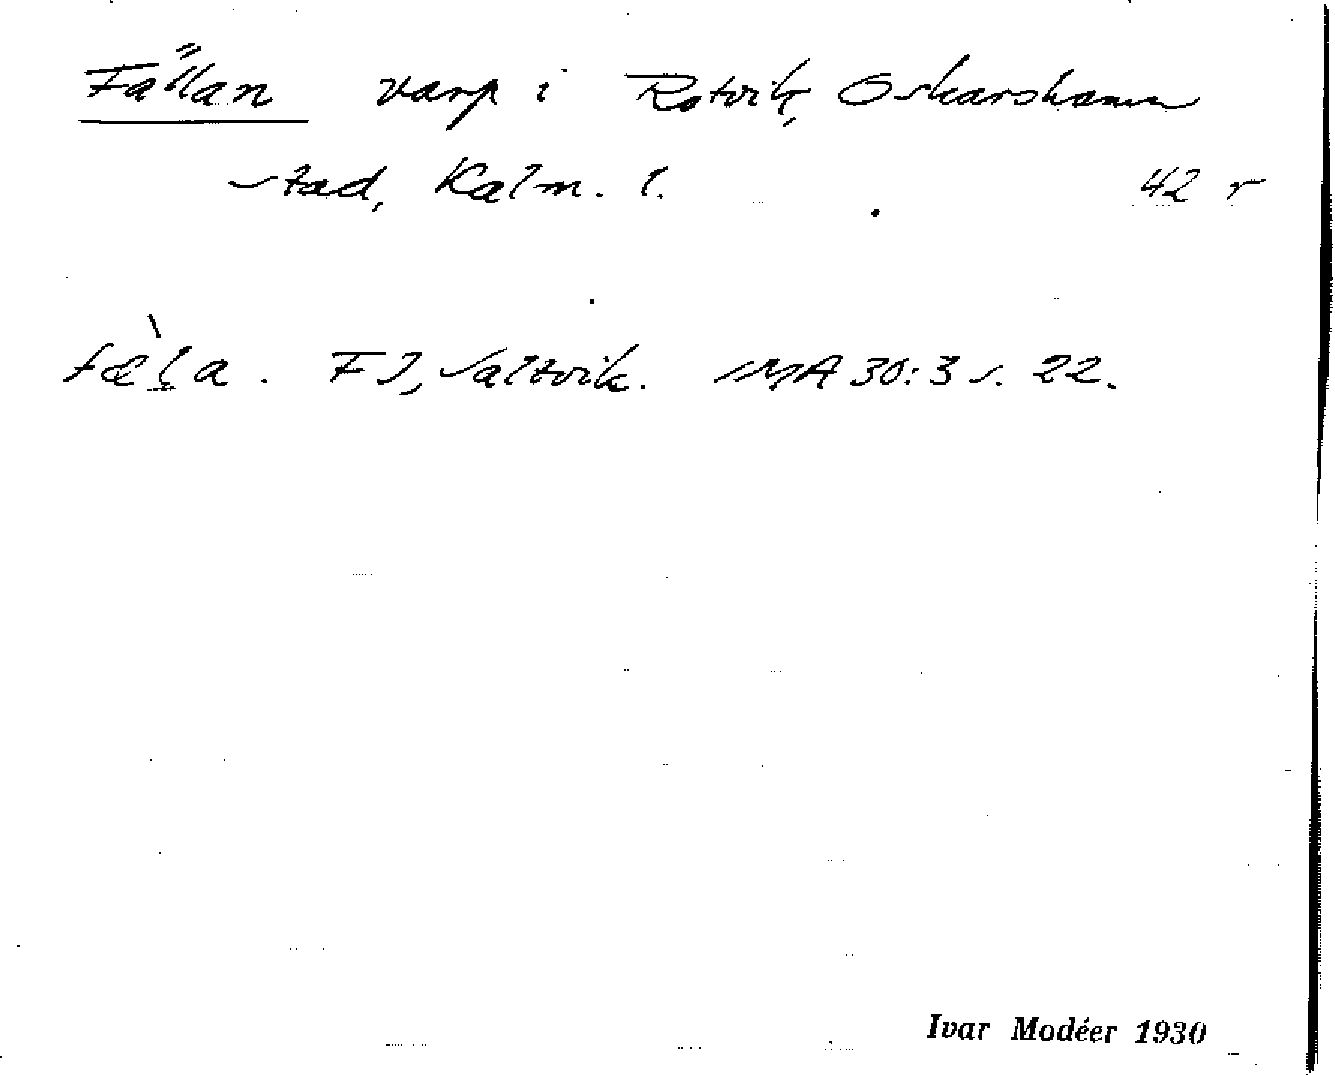 Fällan varp i Rotvik, Oskarshamn
stad, Kalm. l. 42 r
fæ̀l̥a. FJ, Saltvik. IMA 30:3 s. 22.
Ivar Modéer 1930